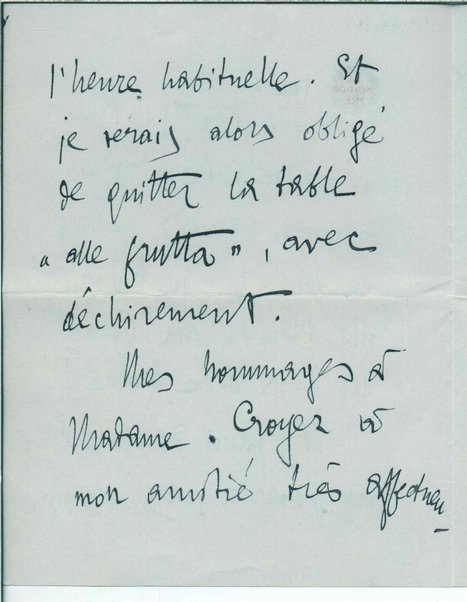 l'heure habituelle. Et
je serais alors obligé
de quitter la table
"alle frutta", avec
déchirement.
Mes hommages à
Madame. Croyez à
mon amitié très affectueu-